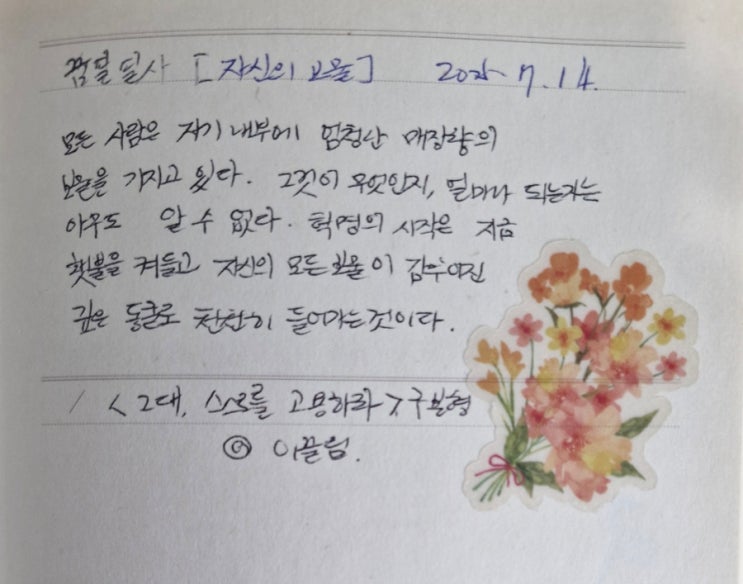 필사 [자신의 보물] 2025. 7. 14.
모든 사람은 자기 내부에 엄청난 매장량의
보물을 가지고 있다. 그것이 무엇인지, 얼마나 되는지는
아무도 알 수 없다. 혁명의 시작은 지금
횃불을 켜들고 자신의 모든 보물이 감추어진
깊은 동굴로 찬찬히 들어가는 것이다.
/ <그대, 스스로를 고용하라> 구본형
이끌림.